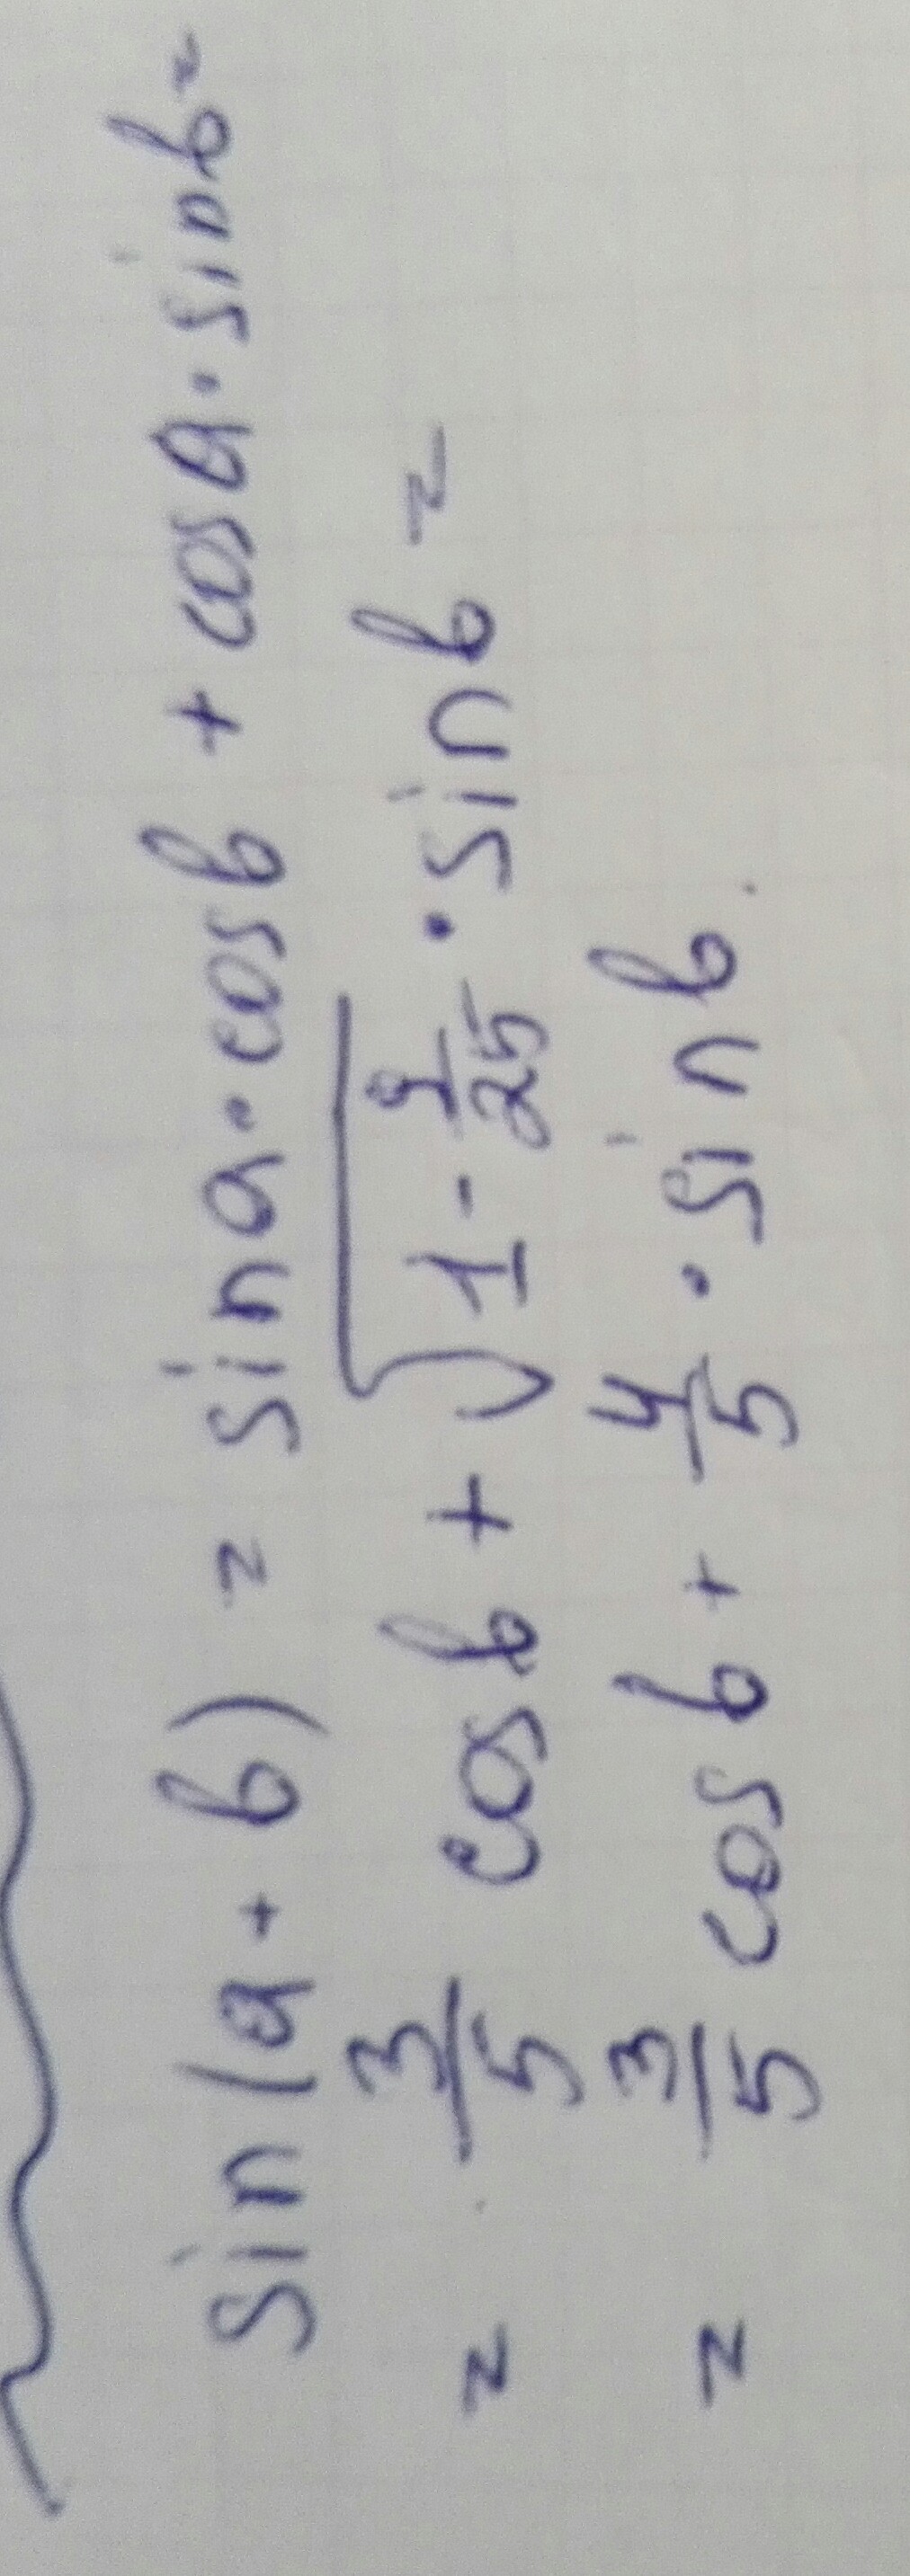 sin(a+b) = sin a · cos b + cos a · sin b =
= 3/5 cos b + √(1 - 9/25) · sin b =
= 3/5 cos b + 4/5 · sin b.